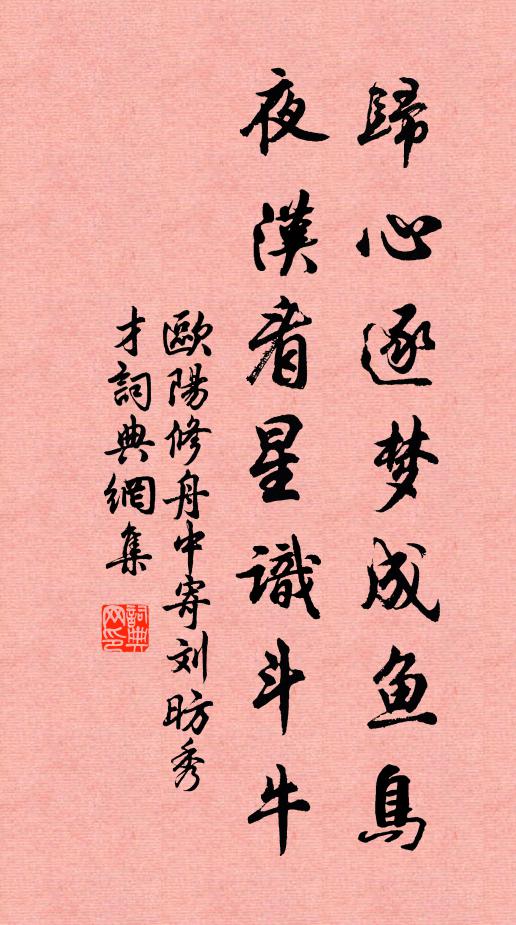 歸心逐梦成鱼鳥
夜漢看星識斗牛
歐陽修舟中寄刘昉秀
才詞典網集
詞典
网印